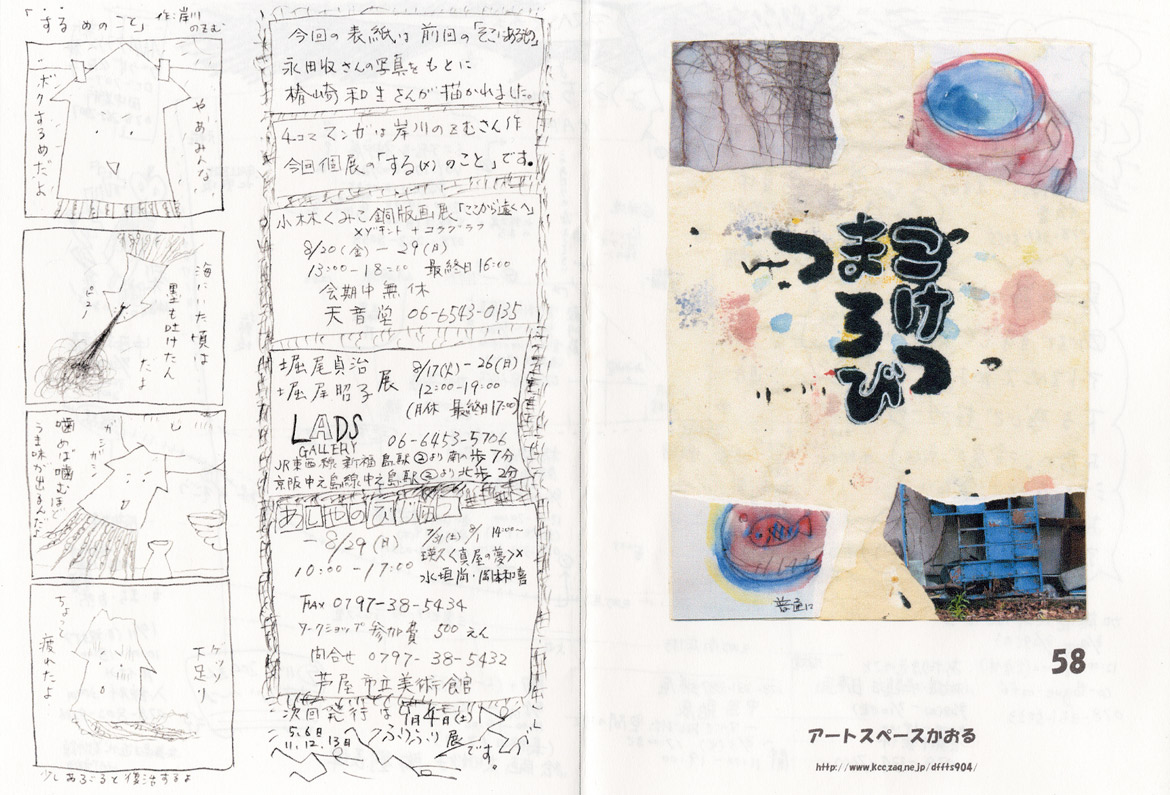 「するめのこと」 作:岸川のぞむ
やぁみんな
ボクするめだよ
海にいた頃は
墨も吐けたん
だよ
ピュー
ガジガジ
噛めば噛むほど
うま味が出るんだよ
ゲソッ
下足り
ちょっと
疲れたよ
少しあぶると復活するよ
今回の表紙は前回の
永田收さんの写真をもとに
楢崎和生さんが描かれました。
4コママンガは岸川のぞむさん作
今回個展の「する(め)のこと」です。
小林くみこ銅版画展「ここから遠くへ」
メゾチント+コラグラフ
8/20(金)-29(日)
13:00-18:00 最終日16:00
会期中無休
天音堂 06-6543-0135
堀尾貞治
堀尾昭子 展
8/17(火)-26(日)
12:00-19:00
(月休 最終日17:00)
LADS
GALLERY
06-6453-5706
JR東西線新福島駅②より南の歩7分
京阪中之島線中之島駅⑥より北歩2分
-8/29(日)
10:00-17:00
7/31(土) 8/1 14:00~
瑛久<真屋の夢>×
水垣尚・岡本和喜
FAX 0797-38-5434
ワークショップ参加費 500えん
問合せ 0797-38-5432
芦屋市立美術館
次回発行は9月4日(土)
5.6日
11.12.13日
ふりふり展
です。
こけつ
まろび
つ
普通に
58
アートスペースかおる
http://www.kcc.zaq.ne.jp/dffts904/